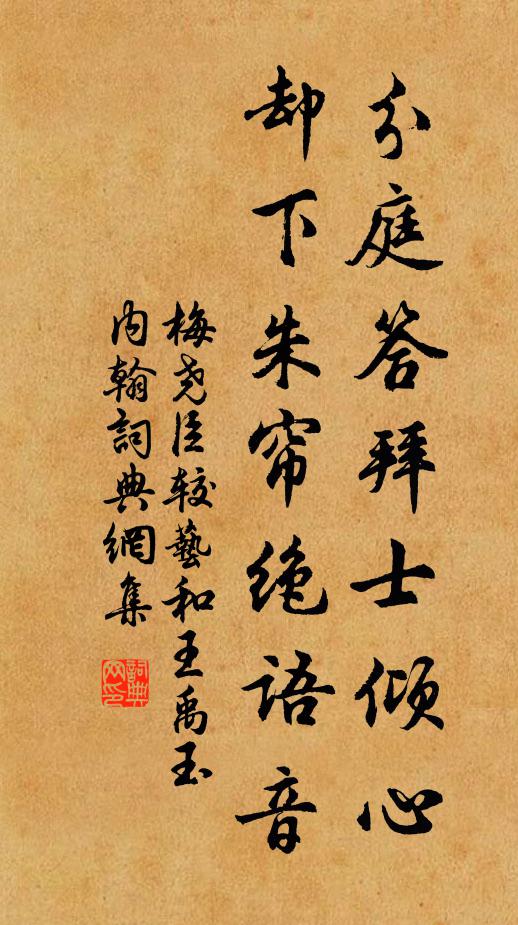 分庭答拜士倾心
却下朱帘绝语音
梅尧臣较藝和王禹玉
内翰詞典網集
詞典
网印